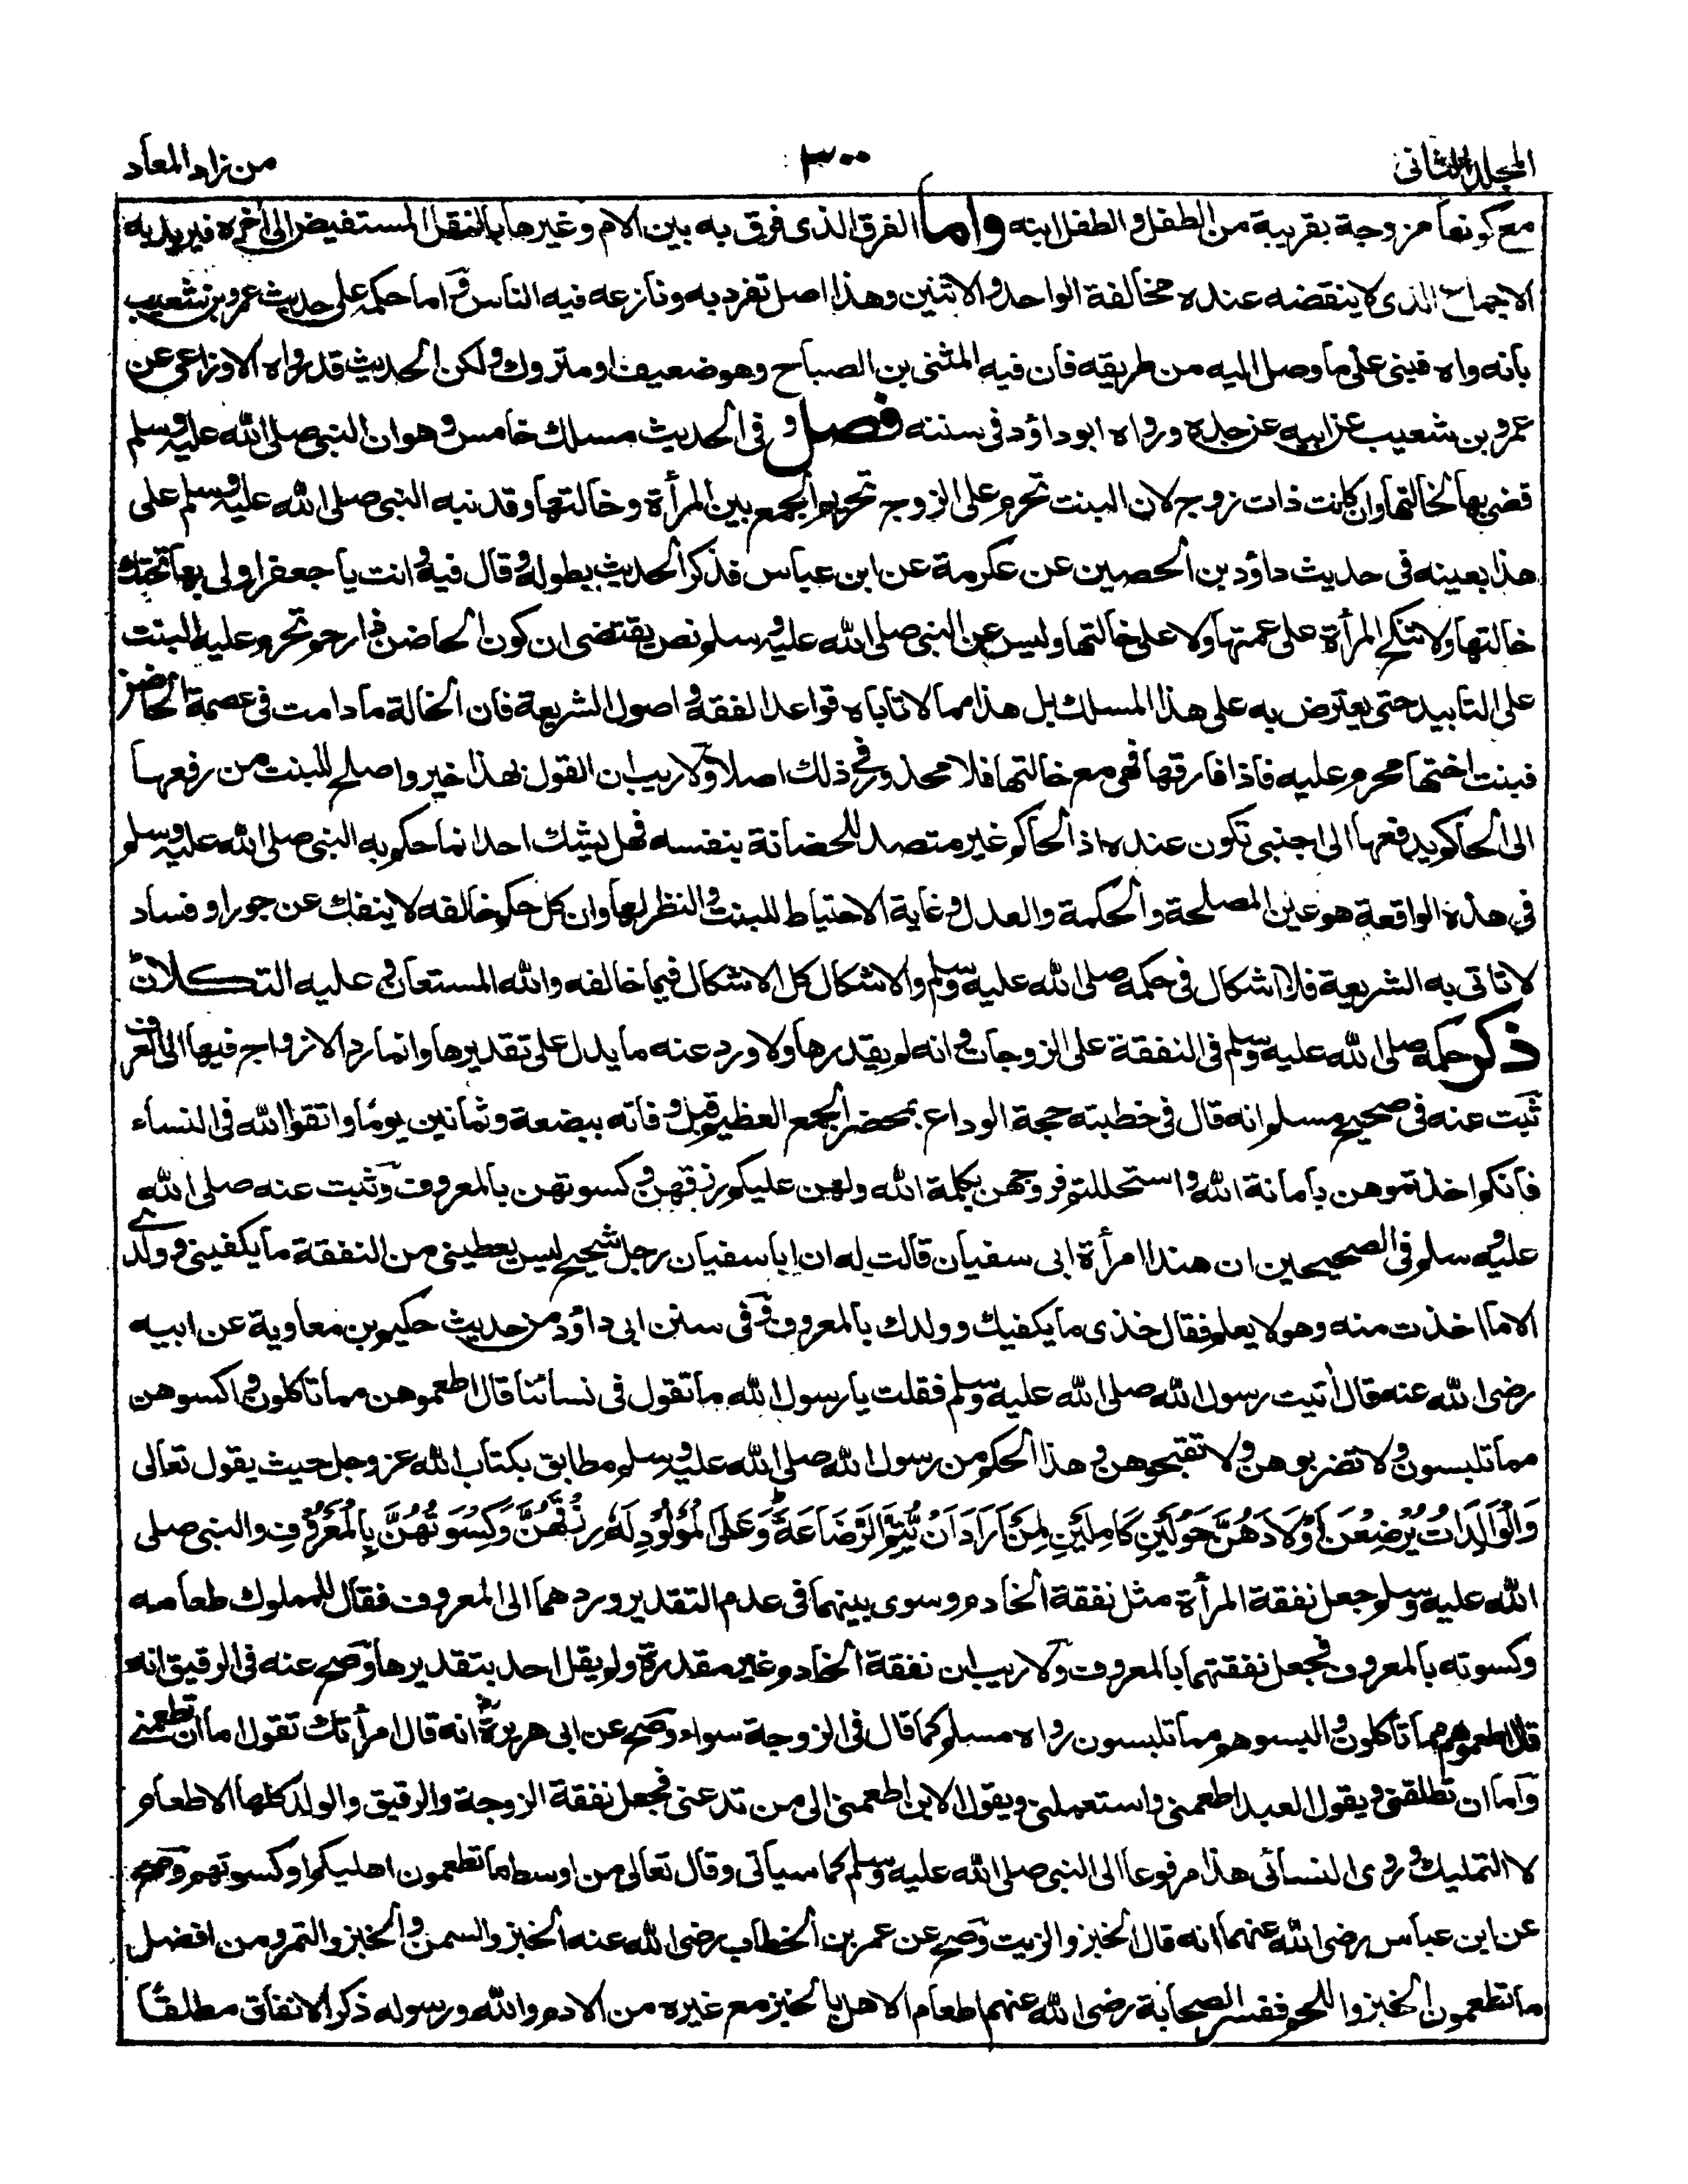 المجلد الثانی
۳۰۰
من زاد المعاد
مع کونها مزوجة بقریبة من الطفل و الطفل ابنه واما الفرق الذی فرق به بین الام وغیرها بالنقل المستفیض الی اخره فیرید به
الاجماع الذی لا ینقضه عنده مخالفة الواحد و الاثنین وهذا اصل تفرد به ونازعه فیه الناس و اما حکمه علی حدیث عمرو بن شعیب
بانه واه فبنی علی ما وصل الیه من طریقه فان فیه المثنی بن الصباح وهو ضعیف او متروك ولکن الحدیث قد رواه الاوزاعی عن
عمرو بن شعیب عن ابیه عن جده ورواه ابو داؤد فی سننه فصل و فی الحدیث مسلك خامس و هوان النبی صلی الله علیه وسلم
قضی بها لخالتها وان کانت ذات زوج لان البنت تحرم علی الزوج تحریم الجمع بین المرأة وخالتها وقد نبه النبی صلی الله علیه وسلم علی
هذا بعینه فی حدیث داؤد بن الحصین عن عکرمة عن ابن عباس فذکر الحدیث بطوله وقال فیه وانت یا جعفر اولی بها تحتك
خالتها ولا تنکح المرأة علی عمتها ولا علی خالتها ولیس عن النبی صلی الله علیه وسلم نص یقتضی ان کون الحاضن ذا رحم تحرم علیه البنت
علی التابید حتی یعترض به علی هذا المسلك بل هذا مما لا تاباه قواعد الفقه و اصول الشریعة فان الخالة ما دامت فی عصمة الحاضن
فبنت اختها محرم علیه فاذا فارقها فهی مع خالتها فلا محذور فی ذلك اصلا ولا ریب ان القول بهذا خیر واصلح للبنت من رفعها
الی الحاکم یدفعها الی اجنبی تکون عنده اذ الحاکم غیر متصد للحضانة بنفسه فهل یشك احد انما حکم به النبی صلی الله علیه وسلم
فی هذه الواقعة هو عین المصلحة والحکمة والعدل و غایة الاحتیاط للبنت و النظر لها وان کل حکم خالفه لا ینفك عن جور او فساد
لا تاتی به الشریعة فلا اشکال فی حکمه صلی الله علیه وسلم والاشکال کل الاشکال فیما خالفه والله المستعان و علیه التکلان
ذکر حکمه صلی الله علیه وسلم فی النفقة علی الزوجات و انه لم یقدرها ولا ورد عنه ما یدل علی تقدیرها وانما رد الازواج فیها الی العرف
ثبت عنه فی صحیح مسلم انه قال فی خطبته حجة الوداع بمحضر الجمع العظیم قبل وفاته ببضعة وثمانین یوما واتقوا الله فی النساء
فانکم اخذتموهن بامانة الله و استحللتم فروجهن بکلمة الله ولهن علیکم رزقهن و کسوتهن بالمعروف وثبت عنه صلی الله
علیه وسلم فی الصحیحین ان هندا امرأة ابی سفیان قالت له ان ابا سفیان رجل شحیح لیس یعطینی من النفقة ما یکفینی و ولدی
الا ما اخذت منه وهو لا یعلم فقال خذی ما یکفیك و ولدك بالمعروف و فی سنن ابی داؤد من حدیث حکیم بن معاویة عن ابیه
رضی الله عنه قال اتیت رسول الله صلی الله علیه وسلم فقلت یا رسول الله ما تقول فی نسائنا قال اطعموهن مما تاکلون و اکسوهن
مما تلبسون و لا تضربوهن و لا تقبحوهن و هذا الحکم من رسول الله صلی الله علیه وسلم مطابق بکتاب الله عز وجل حیث یقول تعالی
وَالْوَالِدَاتُ یُرْضِعْنَ اَوْلَادَهُنَّ حَوْلَیْنِ کَامِلَیْنِ لِمَنْ اَرَادَ اَنْ یُّتِمَّ الرَّضَاعَةَ وَعَلَی الْمَوْلُودِ لَهٗ رِزْقُهُنَّ وَکِسْوَتُهُنَّ بِالْمَعْرُوْفِ والنبی صلی
الله علیه وسلم جعل نفقة المرأة مثل نفقة الخادم وسوی بینهما فی عدم التقدیر وردهما الی المعروف فقال للمملوك طعامه
وکسوته بالمعروف فجعل نفقتهما بالمعروف ولا ریب ان نفقة الخادم غیر مقدرة ولم یقل احد بتقدیرها وصح عنه فی الرقیق انه
قال اطعموهم مما تاکلون و البسوهم مما تلبسون رواه مسلم کما قال فی الزوجة سواء وصح عن ابی هریرة انه قال امرأتك تقول اما ان تطعمنی
واما ان تطلقنی و یقول العبد اطعمنی واستعملنی ویقول الابن اطعمنی الی من تدعنی فجعل نفقة الزوجة والرقیق والولد کلها الاطعام
لا التملیك و روی النسائی هذا مرفوعا الی النبی صلی الله علیه وسلم کما سیاتی وقال تعالی من اوسط ما تطعمون اهلیکم او کسوتهم وصح
عن ابن عباس رضی الله عنهما انه قال الخبز والزیت وصح عن عمر بن الخطاب رضی الله عنه الخبز والسمن و الخبز والتمر ومن افضل
ما تطعمون الخبز واللحم ففسر الصحابة رضی الله عنهم اطعام الاهل بالخبز مع غیره من الادم والله ورسوله ذکرا الانفاق مطلقا